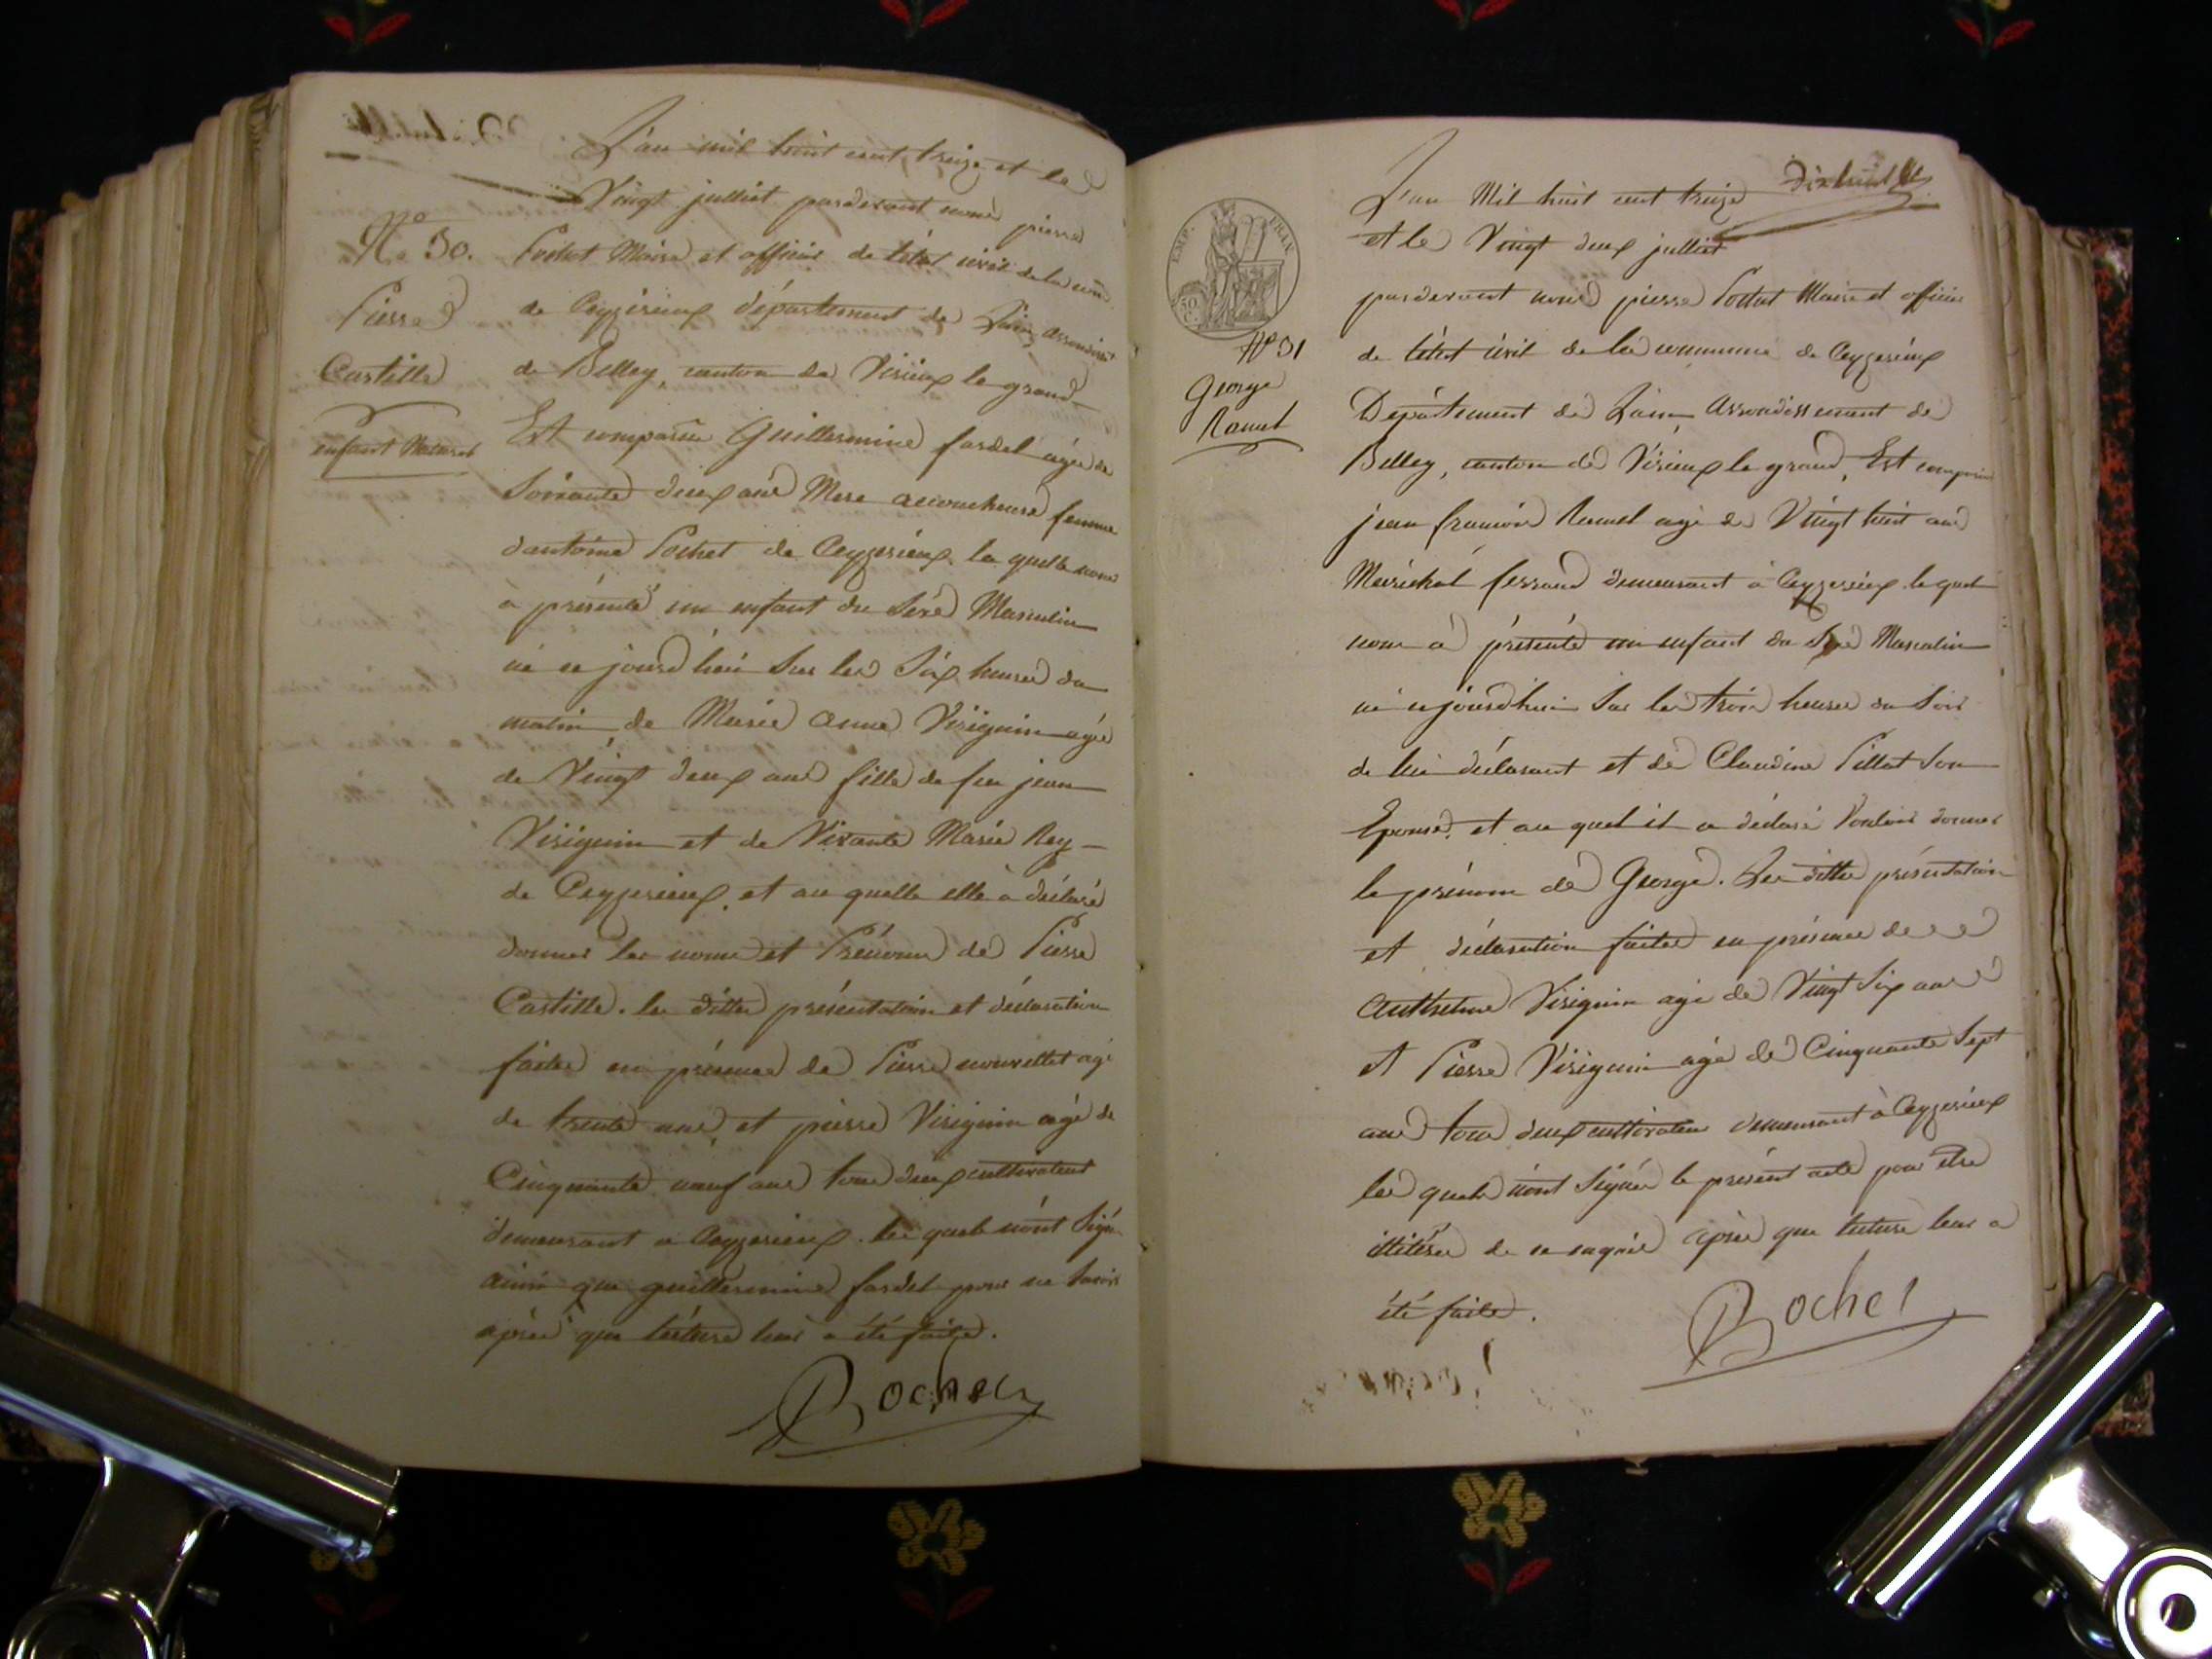 L'an mil huit cent treize et le
Vingt julliet pardevant nous pierre
Pochet Maire et officier de l'état civil de la com
de Ceyzerieux département de L'ain, arrondisst
de Belley, canton de Virieux le grand
Est comparue Guillermine fardel agée de
Soixante deux ans Mere accoucheuse femme
d'antoine Pochet de Ceyzerieux. la quelle nous
à présenté un enfant du Séxe Masculin
né ce jourd'hui Sur les Six heures du
matin de Marie anne Viriguin agée
de Vingt deux ans fille de feu jean
Viriguin et de Vivante Marie Rey
de Ceyzerieux. et au quelle elle à déclaré
donner les noms et Prénoms de Pierre
Castille. les dittes présentation et déclaration
faites en présence de Pierre nouvellet agé
de trente ans, et pierre Viriguin agé de
Cinquante neuf ans tous deux cultivateurs
demeurant a Ceyzerieux. les quels n'ont Signé
ainsi que guillermine fardel pour ne Savoir
après que lecture leur a été faite.
Pochet
N.o 30.
Pierre
Castille
enfant Naturel
Dixhuit
L'an Mil huit cent treize
et le Vingt deux julliet
pardevant nous pierre Pochet Maire et officier
de l'état civil de la commune de Ceyzerieux
Département de L'ain, Arrondissement de
Belley, canton de Virieux le grand, Est comparu
jean françois Ramel agé de Vingt huit ans
Maréchal ferrand demeurant à Ceyzerieux le quel
nous a présenté un enfant du Sexe Masculin
né cejourd'hui Sur les trois heures du Soir
de lui déclarant et de Claudine Pillat Son
Epouse. et au quel il a déclaré Vouloir donner
le prénom de George. Les dittes présentation
et déclaration faites en présence de
Anthelme Viriguin agé de Vingt Six ans
et Pierre Viriguin agé de Cinquante Sept
ans tous deux cultivateurs demeurant à Ceyzerieux
les quels n'ont Signés le présent acte pour être
illitérés de ce enquis après que lecture leur a
été faite.
Pochet
EMP. FRAN.
50 C.
No 31
George
Ramel